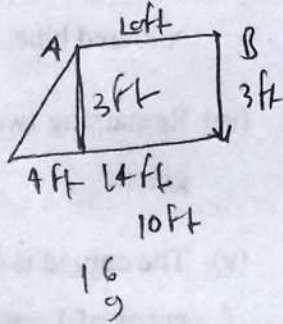 10ft
A B
3ft 3ft
4ft 14ft
10ft
16
9